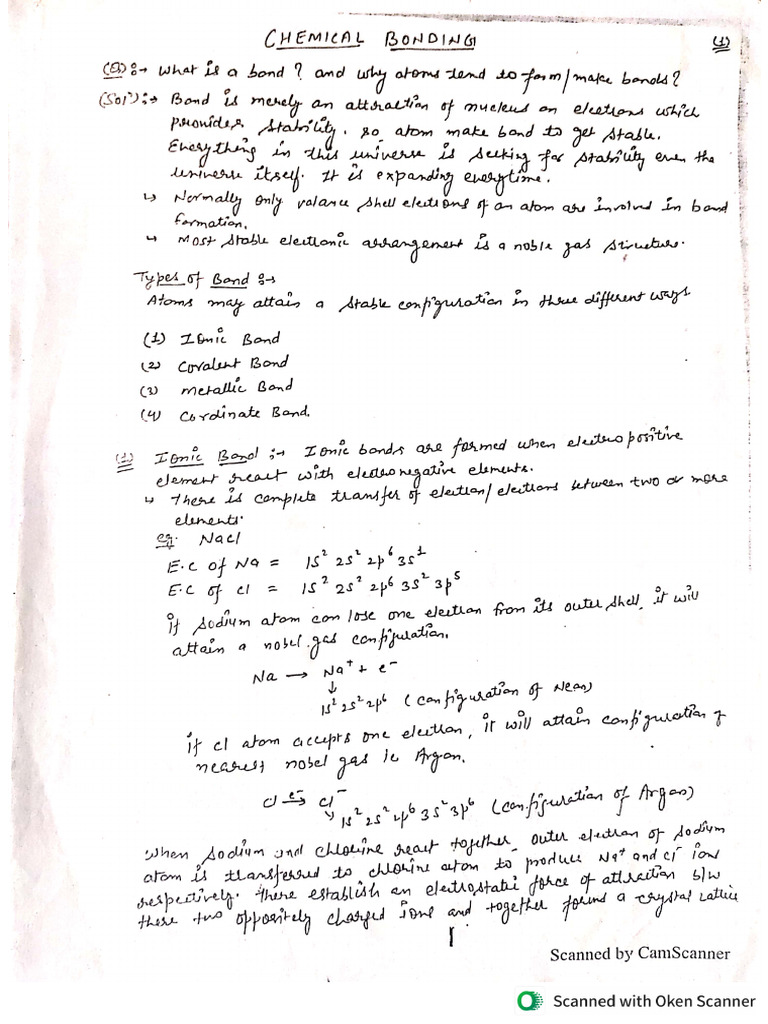 CHEMICAL BONDING
(1)
(Q):→ What is a bond? and why atoms tend to form/make bonds?
(Solⁿ):→ Bond is merely an attraction of nucleus on electrons which
provides stability. so atom make bond to get stable.
Everything in this universe is seeking for stability even the
universe itself. It is expanding everytime.
↳ Normally only valance shell electrons of an atom are involved in bond
formation.
↳ Most stable electronic arrangement is a noble gas structure.
Types of Bond :→
Atoms may attain a stable configuration in three different ways
(1) Ionic Bond
(2) Covalent Bond
(3) Metallic Bond
(4) Cordinate Band.
(1) Ionic Bond :→ Ionic bonds are formed when electropositive
element react with electronegative elements.
↳ There is complete transfer of electron/electrons between two or more
elements.
eg. NaCl
E.C of Na = 1s² 2s² 2p⁶ 3s¹
E.C of Cl = 1s² 2s² 2p⁶ 3s² 3p⁵
if sodium atom can lose one electron from its outer shell, it will
attain a nobel gas configuration.
Na → Na⁺ + e⁻
↓
1s² 2s² 2p⁶ (configuration of Neon)
if cl atom accepts one electron, it will attain configuration of
nearest nobel gas ie Argon.
Cl e⁻→ Cl⁻
↳ 1s² 2s² 2p⁶ 3s² 3p⁶ (configuration of Argon)
When sodium and chlorine react together outer electron of sodium
atom is transferred to chlorine atom to produce Na⁺ and Cl⁻ ion
respectively. There establish an electrostatic force of attraction b/w
these two oppositely charged ions and together forms a crystal lattice
1
Scanned by CamScanner
Scanned with Oken Scanner